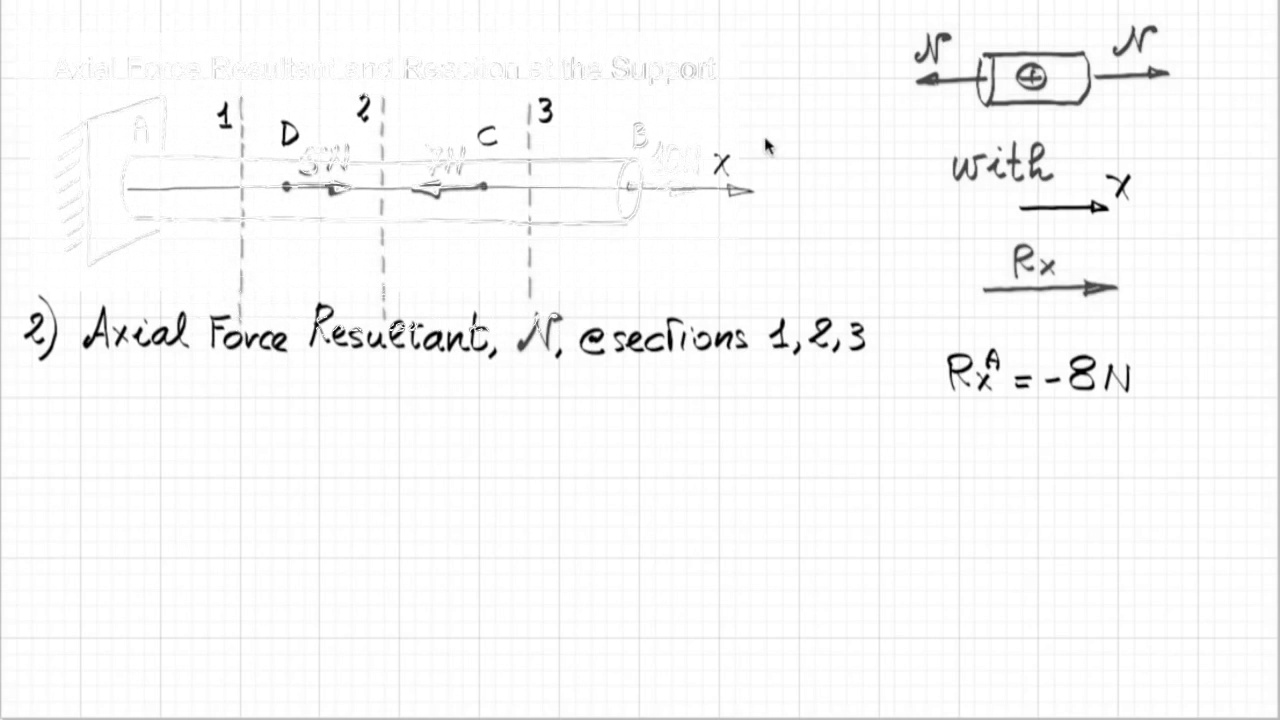 Axial Force Resultant and Reaction at the Support
1 2 3
A D C B
5N 7N 10N x
2) Axial Force Resultant, N, @sections 1,2,3
N N
+
with
x
Rx
RxA = -8N